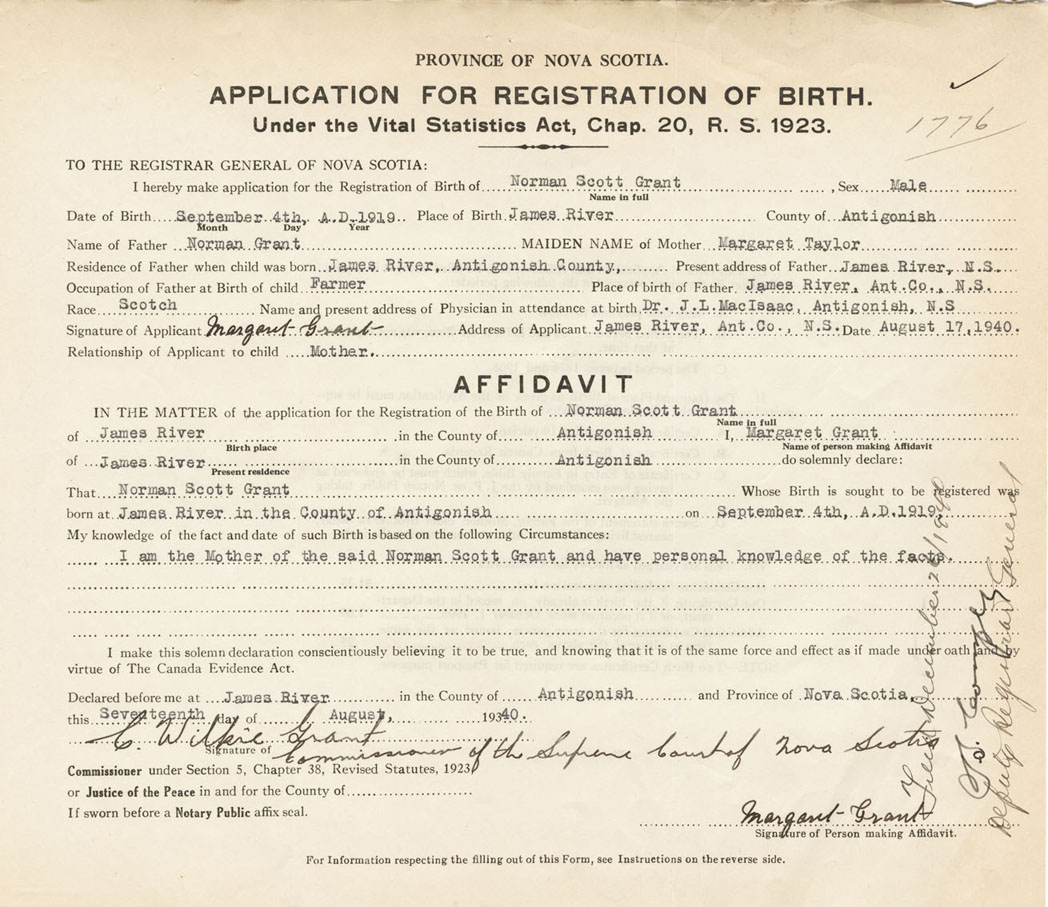 PROVINCE OF NOVA SCOTIA.
APPLICATION FOR REGISTRATION OF BIRTH.
Under the Vital Statistics Act, Chap. 20, R. S. 1923.
1776
TO THE REGISTRAR GENERAL OF NOVA SCOTIA:
I hereby make application for the Registration of Birth of Norman Scott Grant, Sex Male
Name in full
Date of Birth September 4th, A.D.1919 Place of Birth James River County of Antigonish
Month Day Year
Name of Father Norman Grant MAIDEN NAME of Mother Margaret Taylor
Residence of Father when child was born James River, Antigonish County, Present address of Father James River, N.S.
Occupation of Father at Birth of child Farmer Place of birth of Father James River, Ant.Co., N.S.
Race Scotch Name and present address of Physician in attendance at birth Dr. J.L.MacIsaac, Antigonish, N.S
Signature of Applicant Margaret Grant Address of Applicant James River, Ant.Co., N.S. Date August 17,1940.
Relationship of Applicant to child Mother.
AFFIDAVIT
IN THE MATTER of the application for the Registration of the Birth of Norman Scott Grant
Name in full
of James River in the County of Antigonish I, Margaret Grant
Birth place Name of person making Affidavit
of James River in the County of Antigonish do solemnly declare:
Present residence
That Norman Scott Grant Whose Birth is sought to be registered was
born at James River in the County of Antigonish on September 4th, A.D.1919
My knowledge of the fact and date of such Birth is based on the following Circumstances:
I am the Mother of the said Norman Scott Grant and have personal knowledge of the facts.
I make this solemn declaration conscientiously believing it to be true, and knowing that it is of the same force and effect as if made under oath and by
virtue of The Canada Evidence Act.
Declared before me at James River in the County of Antigonish and Province of Nova Scotia,
this Seventeenth day of August, 1940.
C. Wilkie Grant
Signature of
Commissioner of the Supreme Court of Nova Scotia
Commissioner under Section 5, Chapter 38, Revised Statutes, 1923
or Justice of the Peace in and for the County of
If sworn before a Notary Public affix seal.
Margaret Grant
Signature of Person making Affidavit.
For Information respecting the filling out of this Form, see Instructions on the reverse side.
Filed December 26/1940
Deputy Registrar General